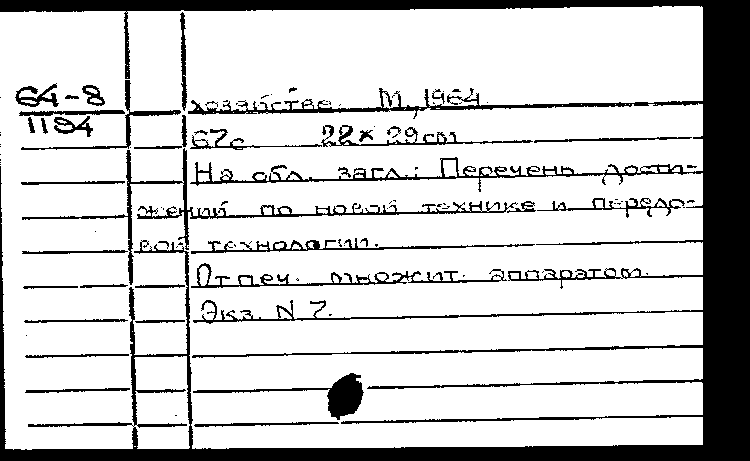 64-8
1194
хозяйстве. М., 1964.
67с. 22 × 29 см
На обл. загл.: Перечень дости-
жений по новой технике и передо-
вой технологии.
Отпеч. множит. аппаратом.
Экз. N 7.